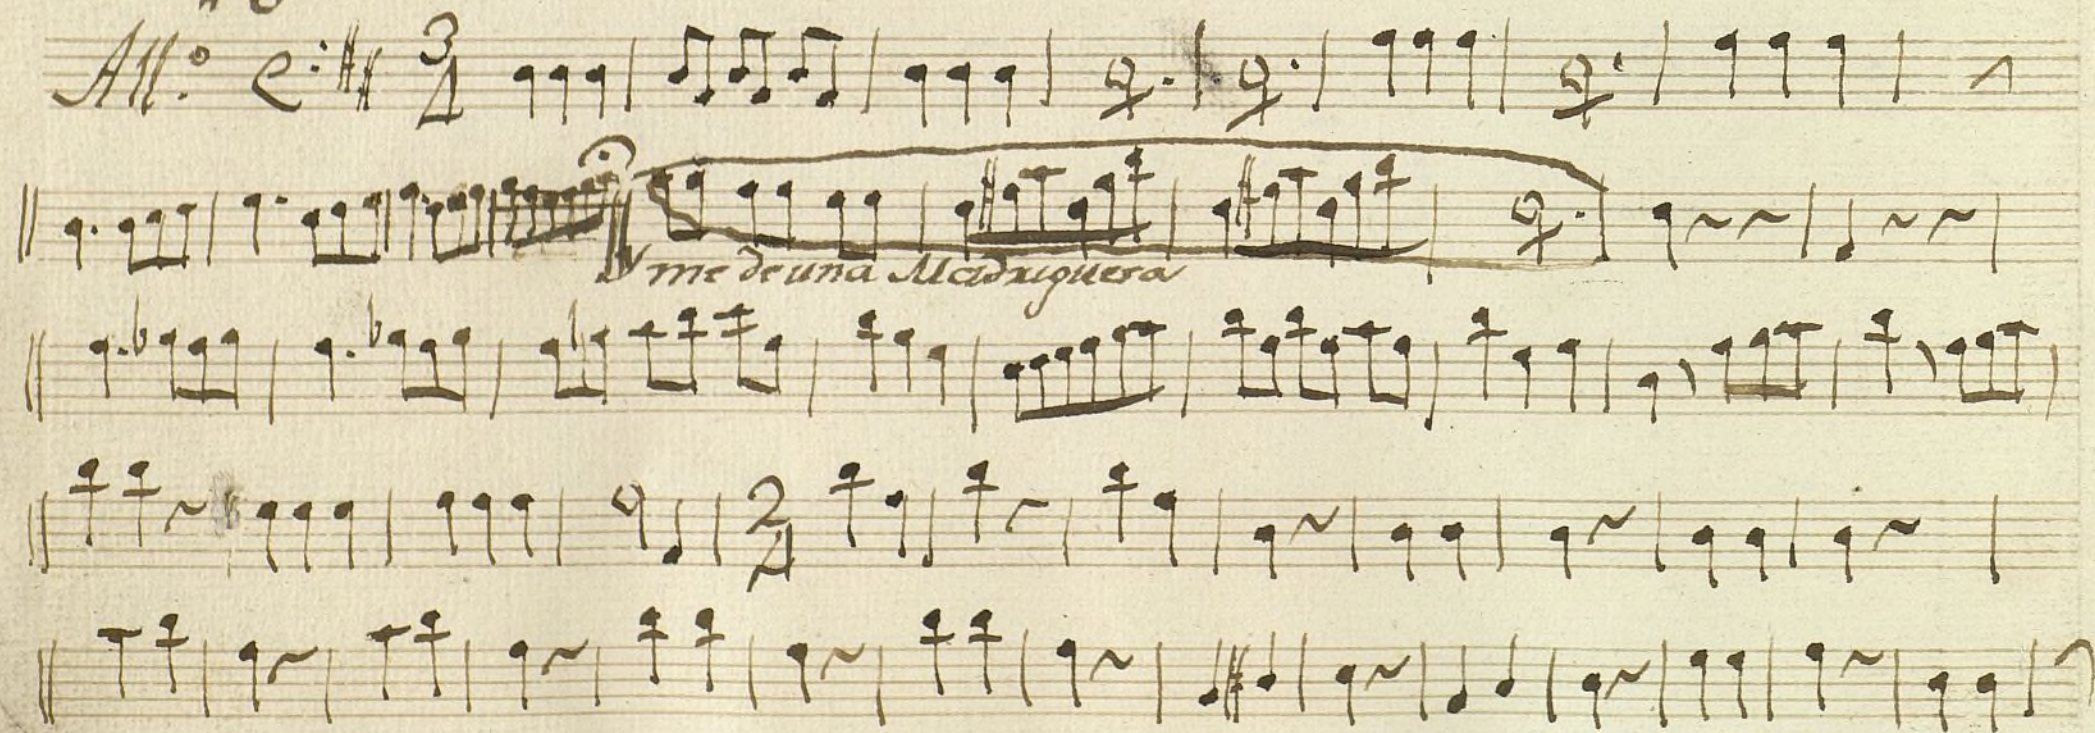 All.º 3/4
y me de una Madriguera
2/4